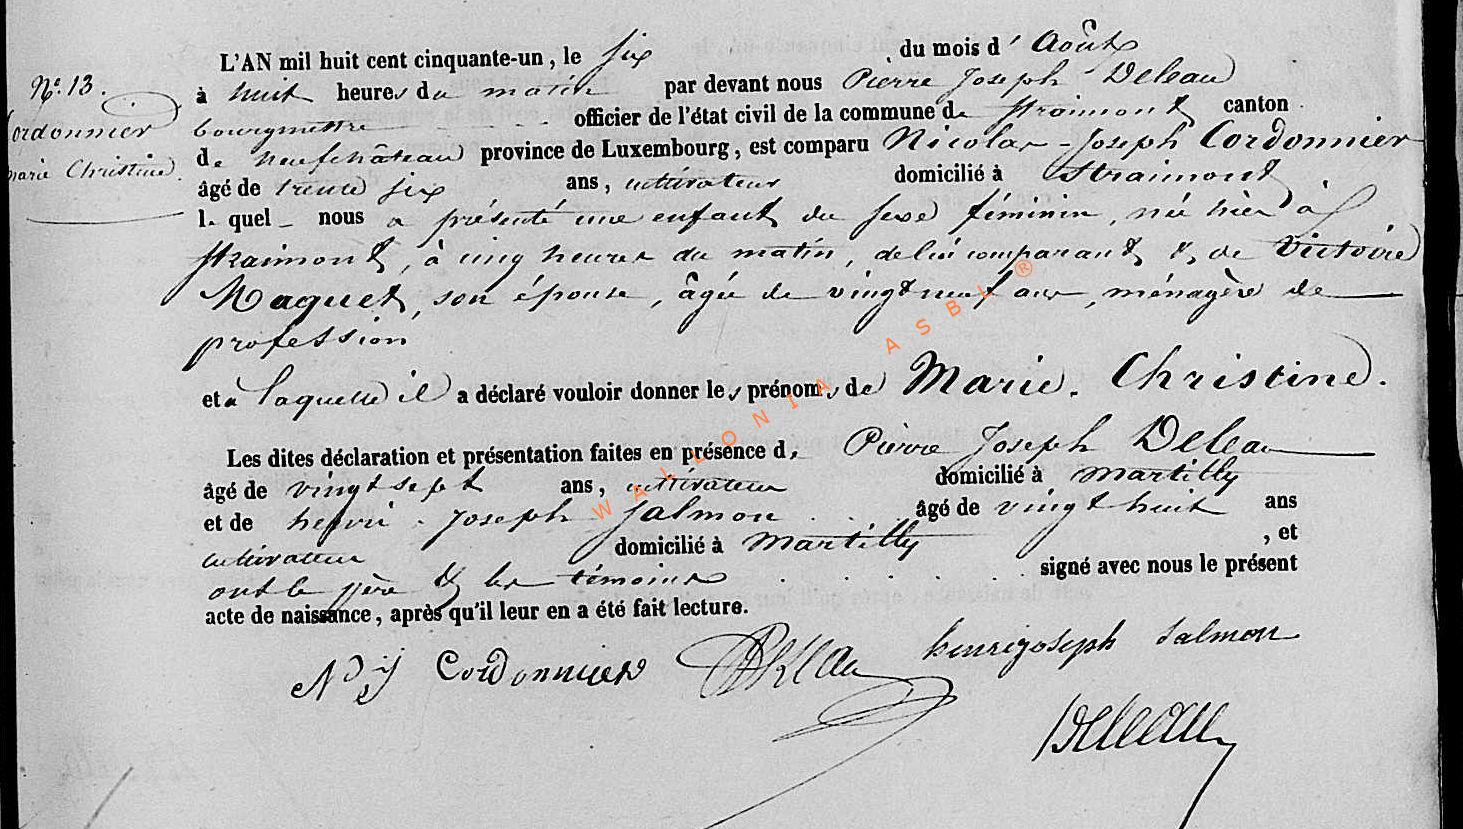 N.° 13.
Cordonnier
Marie Christine.
L'AN mil huit cent cinquante-un, le six du mois d'Août
à huit heures du matin par devant nous Pierre Joseph Deleau
bourgmestre officier de l'état civil de la commune de Straimont canton
de Neufchâteau province de Luxembourg, est comparu Nicolas-Joseph Cordonnier
âgé de trente six ans, cultivateur domicilié à Straimont
lequel nous a présenté une enfant du sexe féminin, née hier à
Straimont, à cinq heures du matin, de lui comparant & de Victoire
Maquet, son épouse, âgée de vingt neuf ans, ménagère de
profession
et à laquelle il a déclaré vouloir donner les prénoms de Marie-Christine.
Les dites déclaration et présentation faites en présence de Pierre Joseph Deleau
âgé de vingt sept ans, cultivateur domicilié à Martilly
et de henri-Joseph Salmon âgé de vingt huit ans
cultivateur domicilié à Martilly, et
ont le père & les témoins signé avec nous le présent
acte de naissance, après qu'il leur en a été fait lecture.
N j Cordonnier henri joseph Salmon
Deleau
WALLONIA ASBL ®